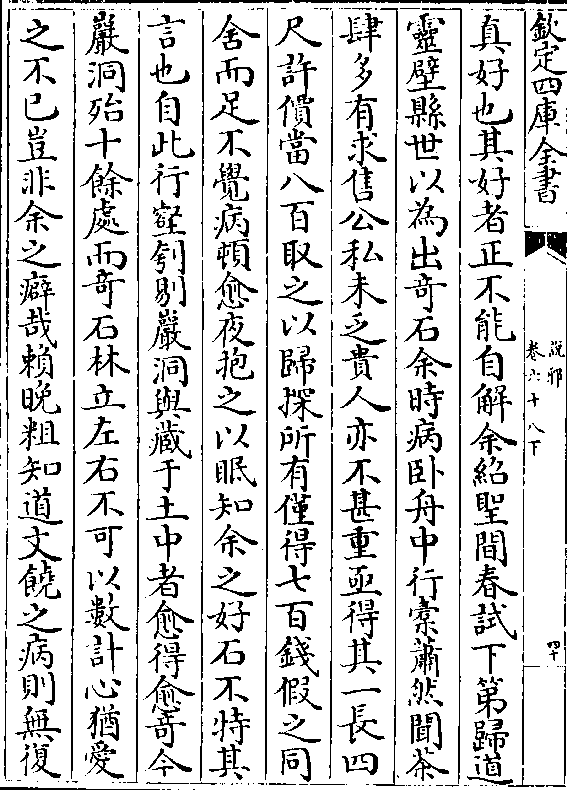 欽定四庫全書
說郛
卷六十八下
四十
真好也其好者正不能自解余紹聖間春試下第歸道
靈壁縣世以為出奇石余時病卧舟中行橐蕭然聞茶
肆多有求售公私未乏貴人亦不甚重亟得其一長四
尺許價當八百取之以歸探所有僅得七百錢假之同
舍而足不覺病頓愈夜抱之以眠知余之好石不特其
言也自此行壑刳剔巖洞與藏于土中者愈得愈奇今
巖洞殆十餘處而奇石林立左右不可以數計心猶愛
之不已豈非余之癖哉賴晚粗知道文饒之病則無復